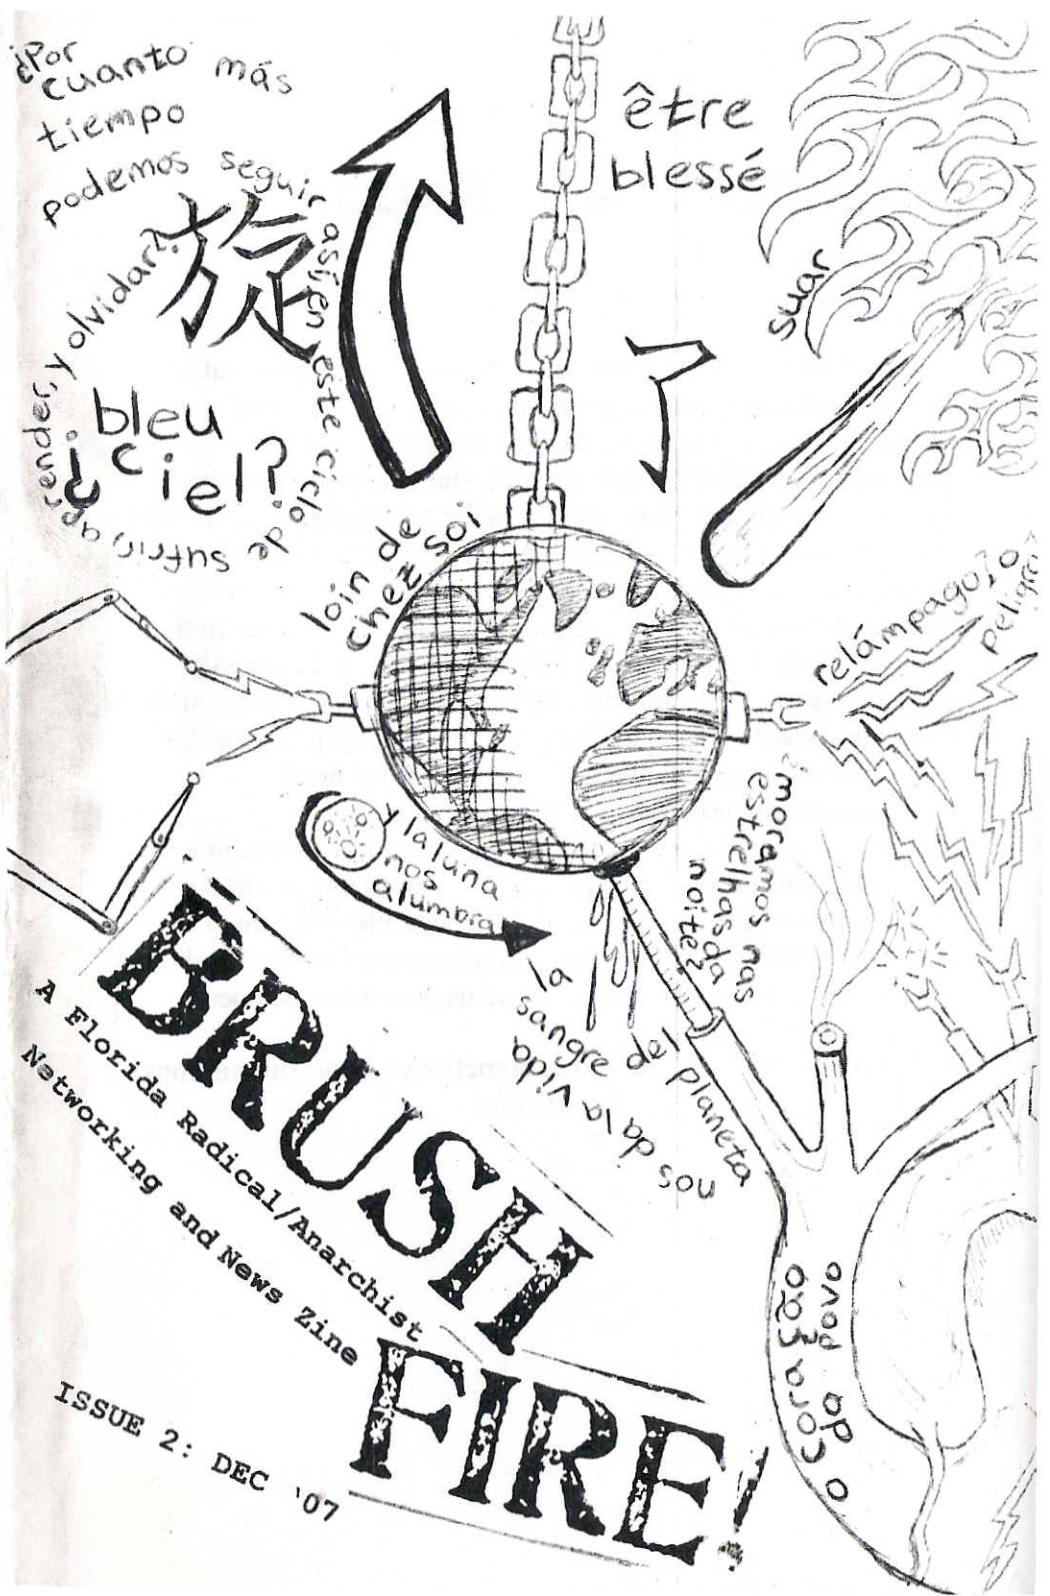 ¿Por
cuanto más
tiempo
podemos seguir
así, en este ciclo de
sufrir, aprender, y olvidar?
旋
bleu
¿ciel?
être
blessé
suar
了
loin de
chez soi
relámpaguzo
peligro
¿moramos nas
estrelhas da
noite?
y la luna
nos
alumbra
la sangre del planeta
nos da la vida
o coração
do povo
BRUSH
FIRE!
A Florida Radical/Anarchist
Networking and News Zine
ISSUE 2: DEC '07